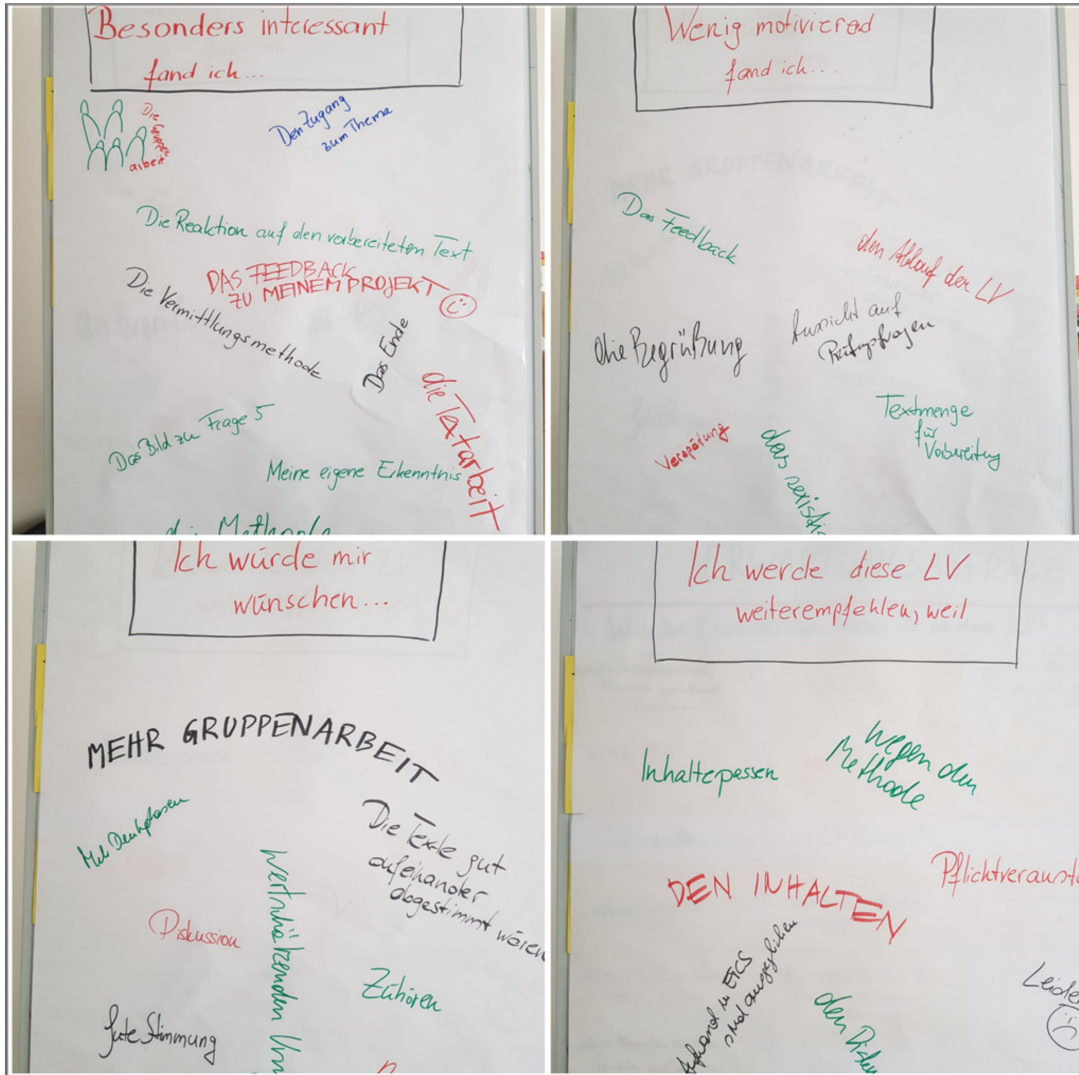 Besonders interessant
fand ich...
Die Gruppen
arbeit
Den Zugang
zum Thema
Die Reaktion auf den vorbereiteten Text
DAS FEEDBACK
ZU MEINEM PROJEKT
Die Vermittlungsmethode
Das Ende
die Textarbeit
Das Bild zu Frage 5
Meine eigene Erkenntnis
die Methode
Wenig motivierend
fand ich...
Das Feedback
den Ablauf der LV
die Begrüßung
Aussicht auf
Prüfungsfragen
Textmenge
für
Vorbereitung
Verspätung
das sexisti
Ich würde mir
wünschen...
MEHR GRUPPENARBEIT
Mehr Denkphasen
Die Texte gut
aufeinander
abgestimmt wären
Diskussion
wertschätzenden Um
Zuhören
gute Stimmung
Ich werde diese LV
weiterempfehlen, weil
Inhalte passen
wegen den
Methode
Pflichtveransta
DEN INHALTEN
Aufwand u ETCS
sind ausgeglichen
den Disku
Leider